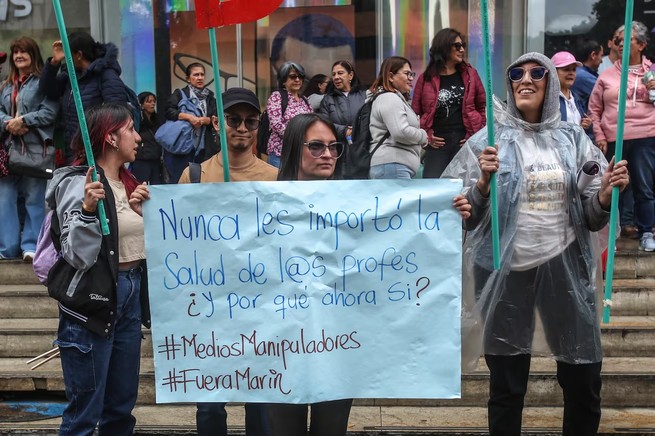 Nunca les importó la
Salud de l@s profes
¿y por que ahora si?
#MediosManipuladores
#FueraMarin